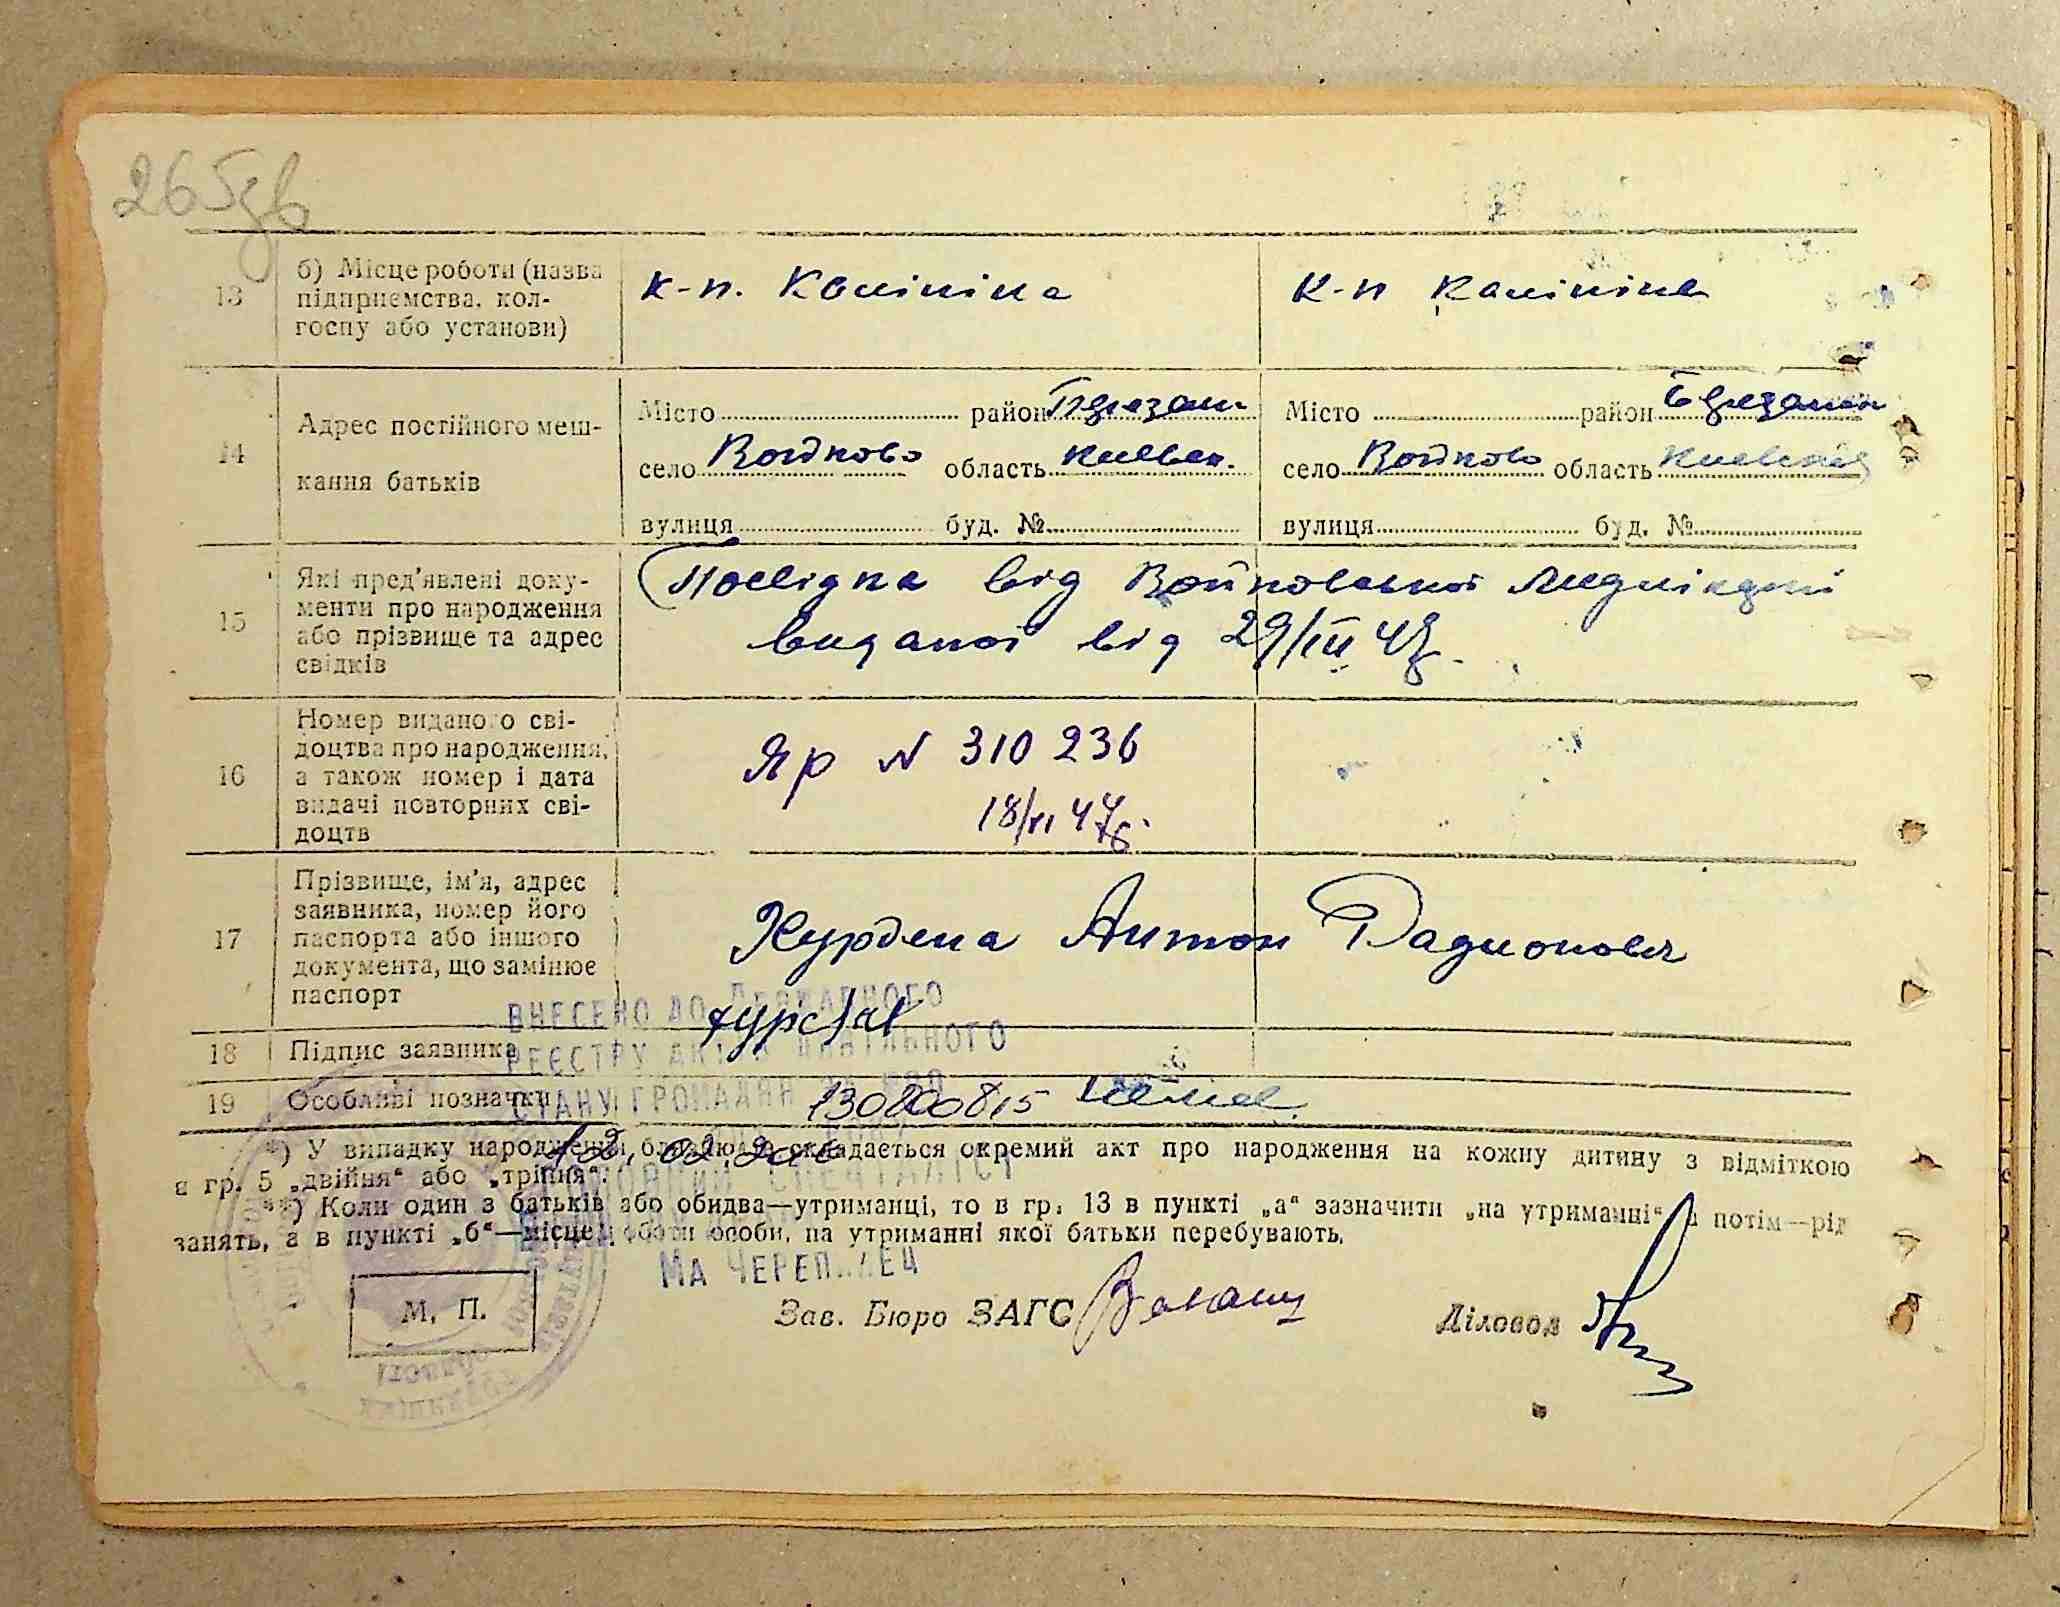 265зв
13 б) Місце роботи (назва підприємства, кол-госпу або установи) к-п. Калініна к-п Калініна
14 Адрес постійного меш-кання батьків
Місто район Березан. Місто район Березанськ
село Войтково область Київськ. село Войтково область Київська
вулиця буд. № вулиця буд. №
15 Які пред'явлені доку-менти про народження або прізвище та адрес свідків
Посвідка від Войковської
виданої від 29/III 47
16 Номер виданого сві-доцтва про народження, а також номер і дата видачі повторних сві-доцтв
Яр N 310 236
18/VI 47
17 Прізвище, ім'я, адрес заявника, номер його паспорта або іншого документа, що замінює паспорт
Антон Радионович
ВНЕСЕНО ДО ДЕРЖАВНОГО
18 Підпис заявника
РЕЄСТРУ АКТІВ ЦИВІЛЬНОГО
19 Особливі позначки
СТАНУ ГРОМАДЯН ЗА №
*) У випадку народження близнюків складається окремий акт про народження на кожну дитину з відміткою
в гр. 5 „двійня“ або „трійня“.
СПЕЦІАЛІСТ
**) Коли один з батьків або обидва—утриманці, то в гр. 13 в пункті „а“ зазначити „на утриманні“ а потім—рід
занять, а в пункті „б“—місце роботи особи, на утриманні якої батьки перебувають.
М. П.
Зав. Бюро ЗАГС
Діловод